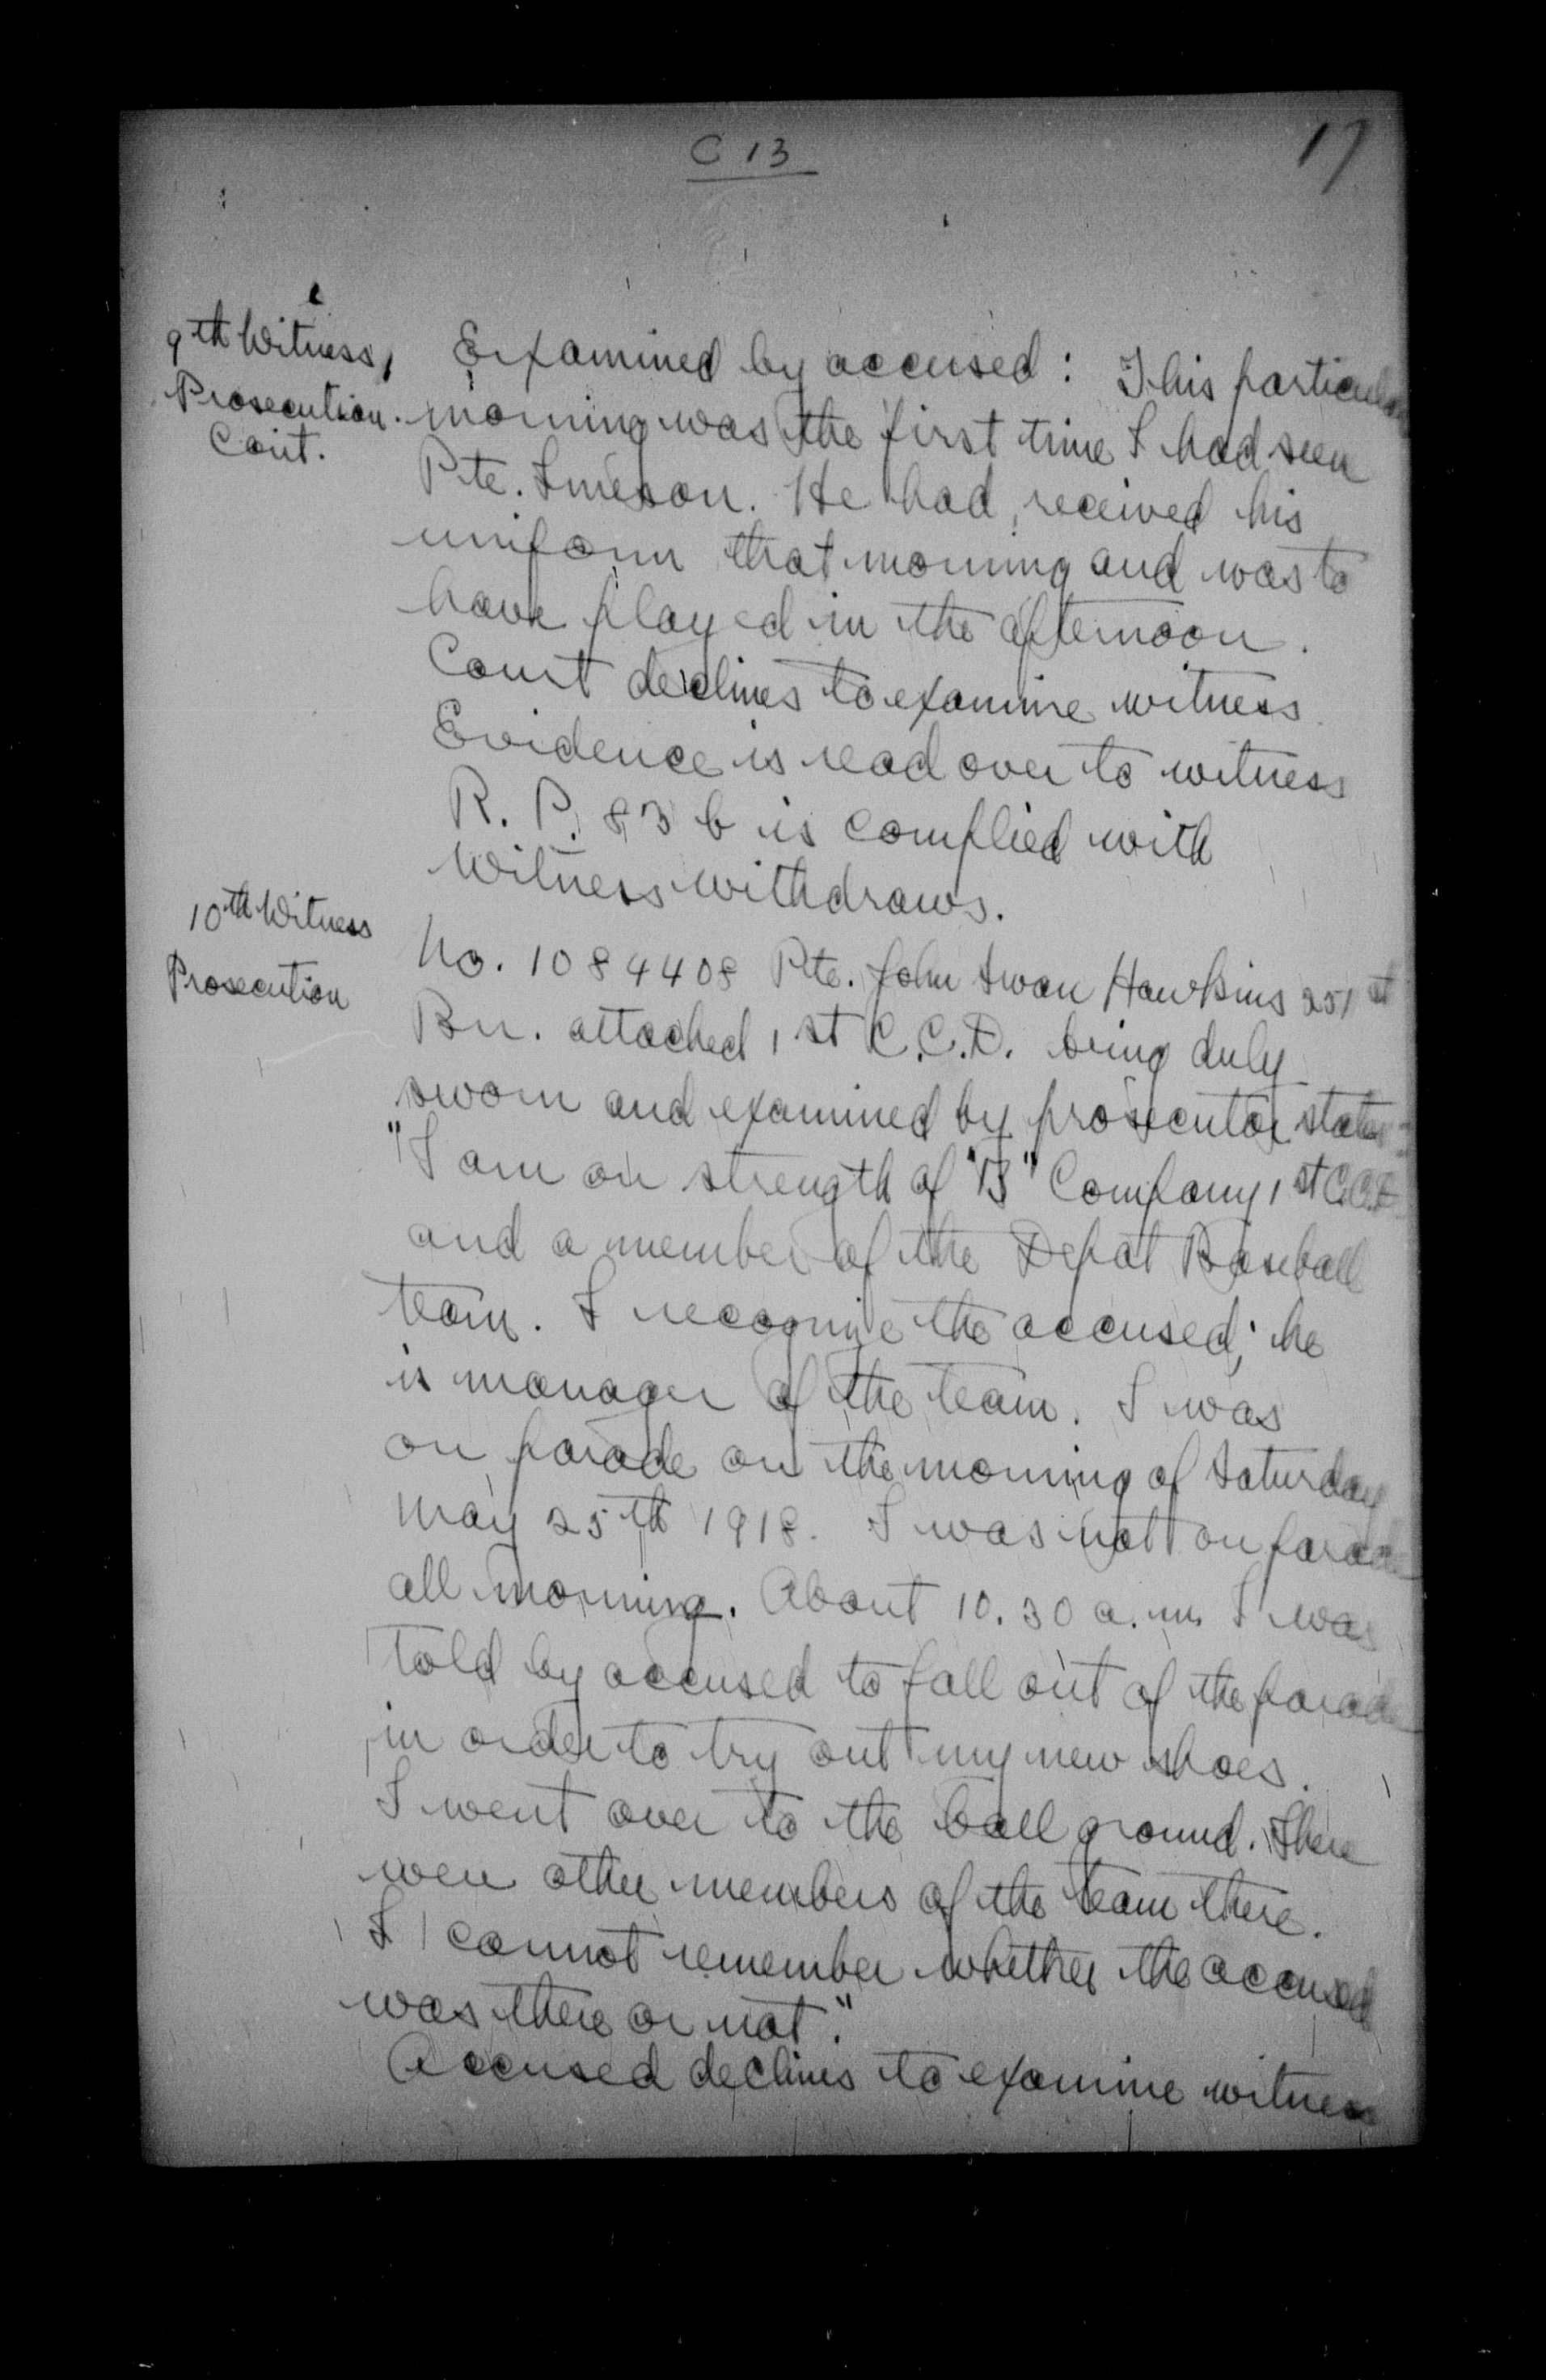 C 13
17
9th Witness,
Prosecution.
Cont.
Examined by accused: This particular
morning was the first time I had seen
Pte. Imeson. He had received his
uniform that morning and was to
have played in the afternoon.
Court declines to examine witness.
Evidence is read over to witness
R. P. 83 b is complied with
Witness withdraws.
10th Witness
Prosecution
No. 1084408 Pte. John Swan Hawkins 251st
Bn. attached 1st C.C.D. being duly
sworn and examined by prosecutor states:
"I am on strength of "B" Company 1st C.C.D.
and a member of the Depot Baseball
team. I recognize the accused; he
is manager of the team. I was
on parade on the morning of Saturday
May 25th 1918. I was not on parade
all morning. About 10.30 a.m. I was
told by accused to fall out of the parade
in order to try out my new shoes.
I went over to the ball ground. There
were other members of the team there.
I cannot remember whether the accused
was there or not."
Accused declines to examine witness